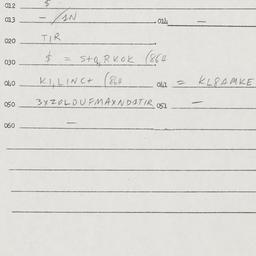 012 $
013 - /1N 014 -
020 TIR
030 $ = S+Q, RKOK (860
040 K1, LINC+ (860 041 = KL8AMKE
050 3XZ0LDUFMAXNDATIR 051 -
060 -